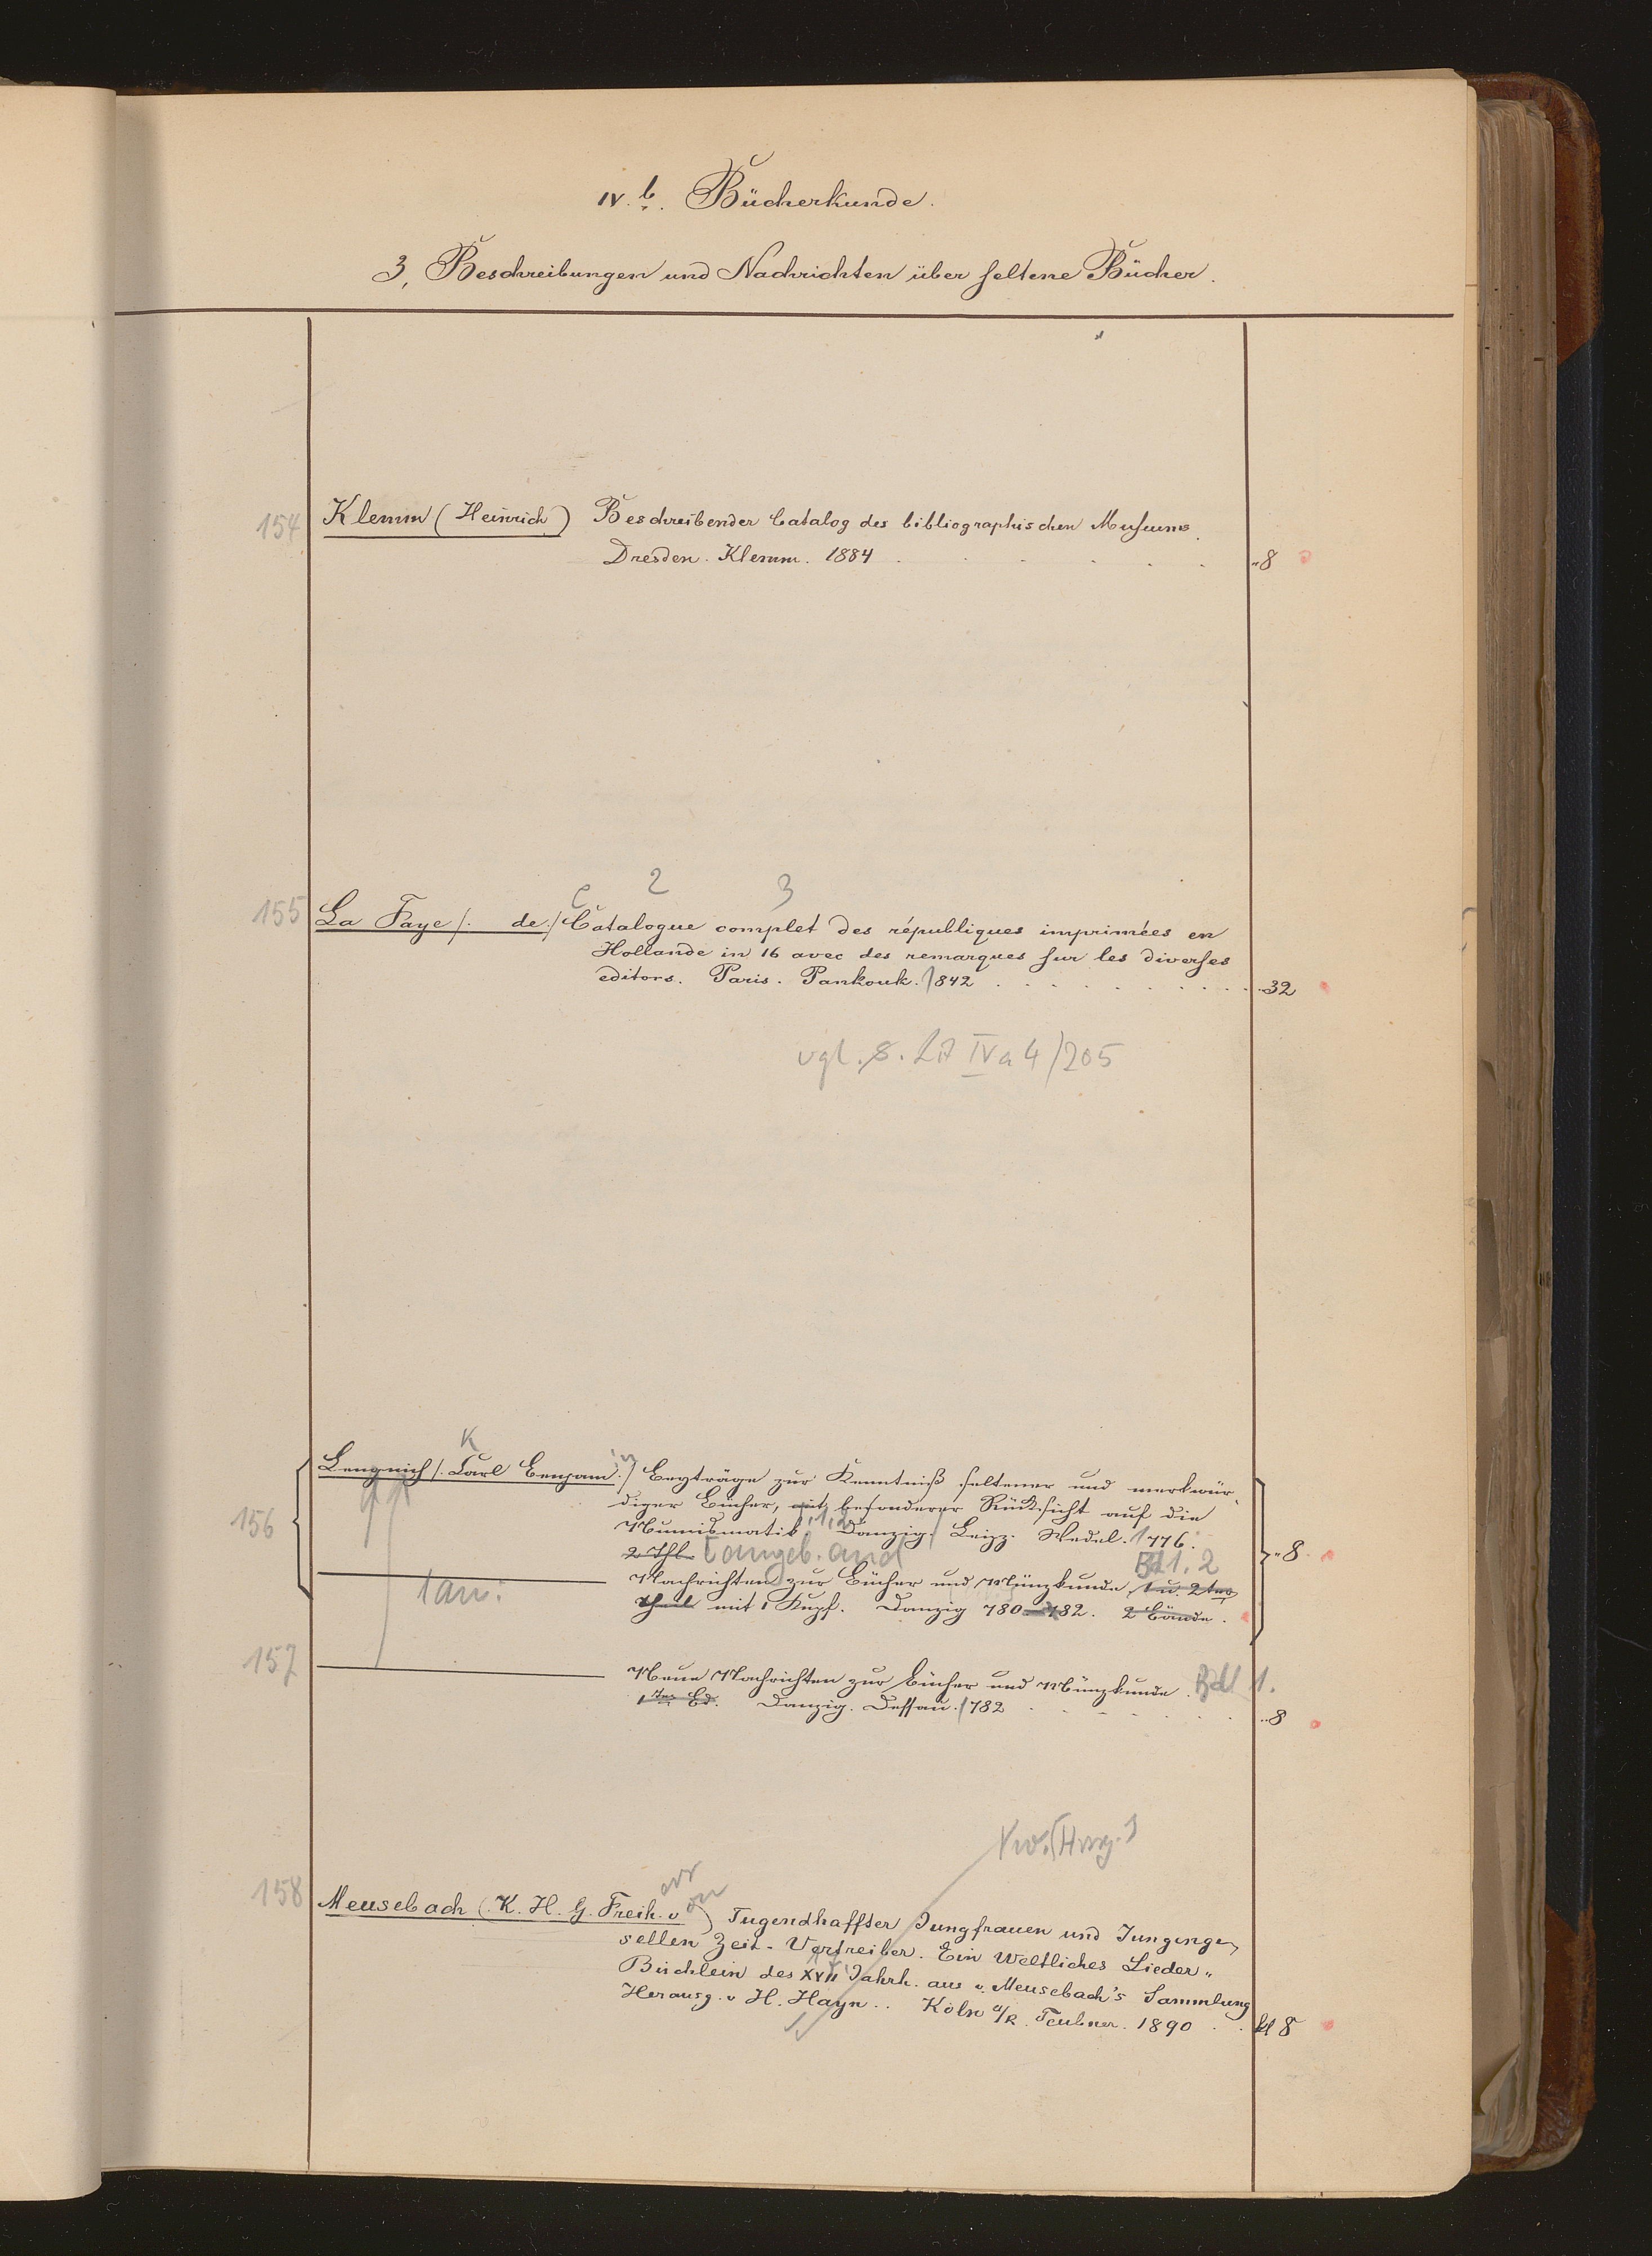 IV. b. Bücherkunde.
3, Beschreibungen und Nachrichten über seltene Bücher.
154 Klemm (Heinrich) Beschreibender Catalog des bibliographischen Museums.
Dresden. Klemm. 1884 . . . . . „8
C 2 3
155 La Faye /. de./ Catalogue complet des républiques imprimées en
Hollande in 16 avec des remarques sur les diverses
editors. Paris. Pankouk. 1842 . . . . . . . . . „32
vgl. IV a 4/205
K
156 Lengnich /. Carl Benjamin./ Beyträge zur Kenntniß seltener und merkwür-
diger Bücher, mit besonderer Rücksicht auf die
Numismatik, 1, 2 Danzig. Leipz. Wedel. 1776.
2 Thle. [angeb. and
Bd 1. 2
Nachrichten zur Bücher und Münzkunde 1 u. 2ter
Theil mit 1 Kupf. Danzig 780–782. 2 Bände. „8.
157 Neue Nachrichten zur Bücher und Münzkunde. Bd 1.
1ter Bd. Danzig. Dessau. 1782 . . . . . . „8
[Hrsg.]
158 Meusebach (K. H. G. Freih. von) Tugendhaffter Jungfrauen und Jungenge-
sellen Zeit-Vertreiber. Ein Weltliches Lieder-
Büchlein des XVII Jahrh. aus v. Meusebach's Sammlung
Herausg. v H. Hayn.. Köln a/R. Teubner. 1890 . . kl 8